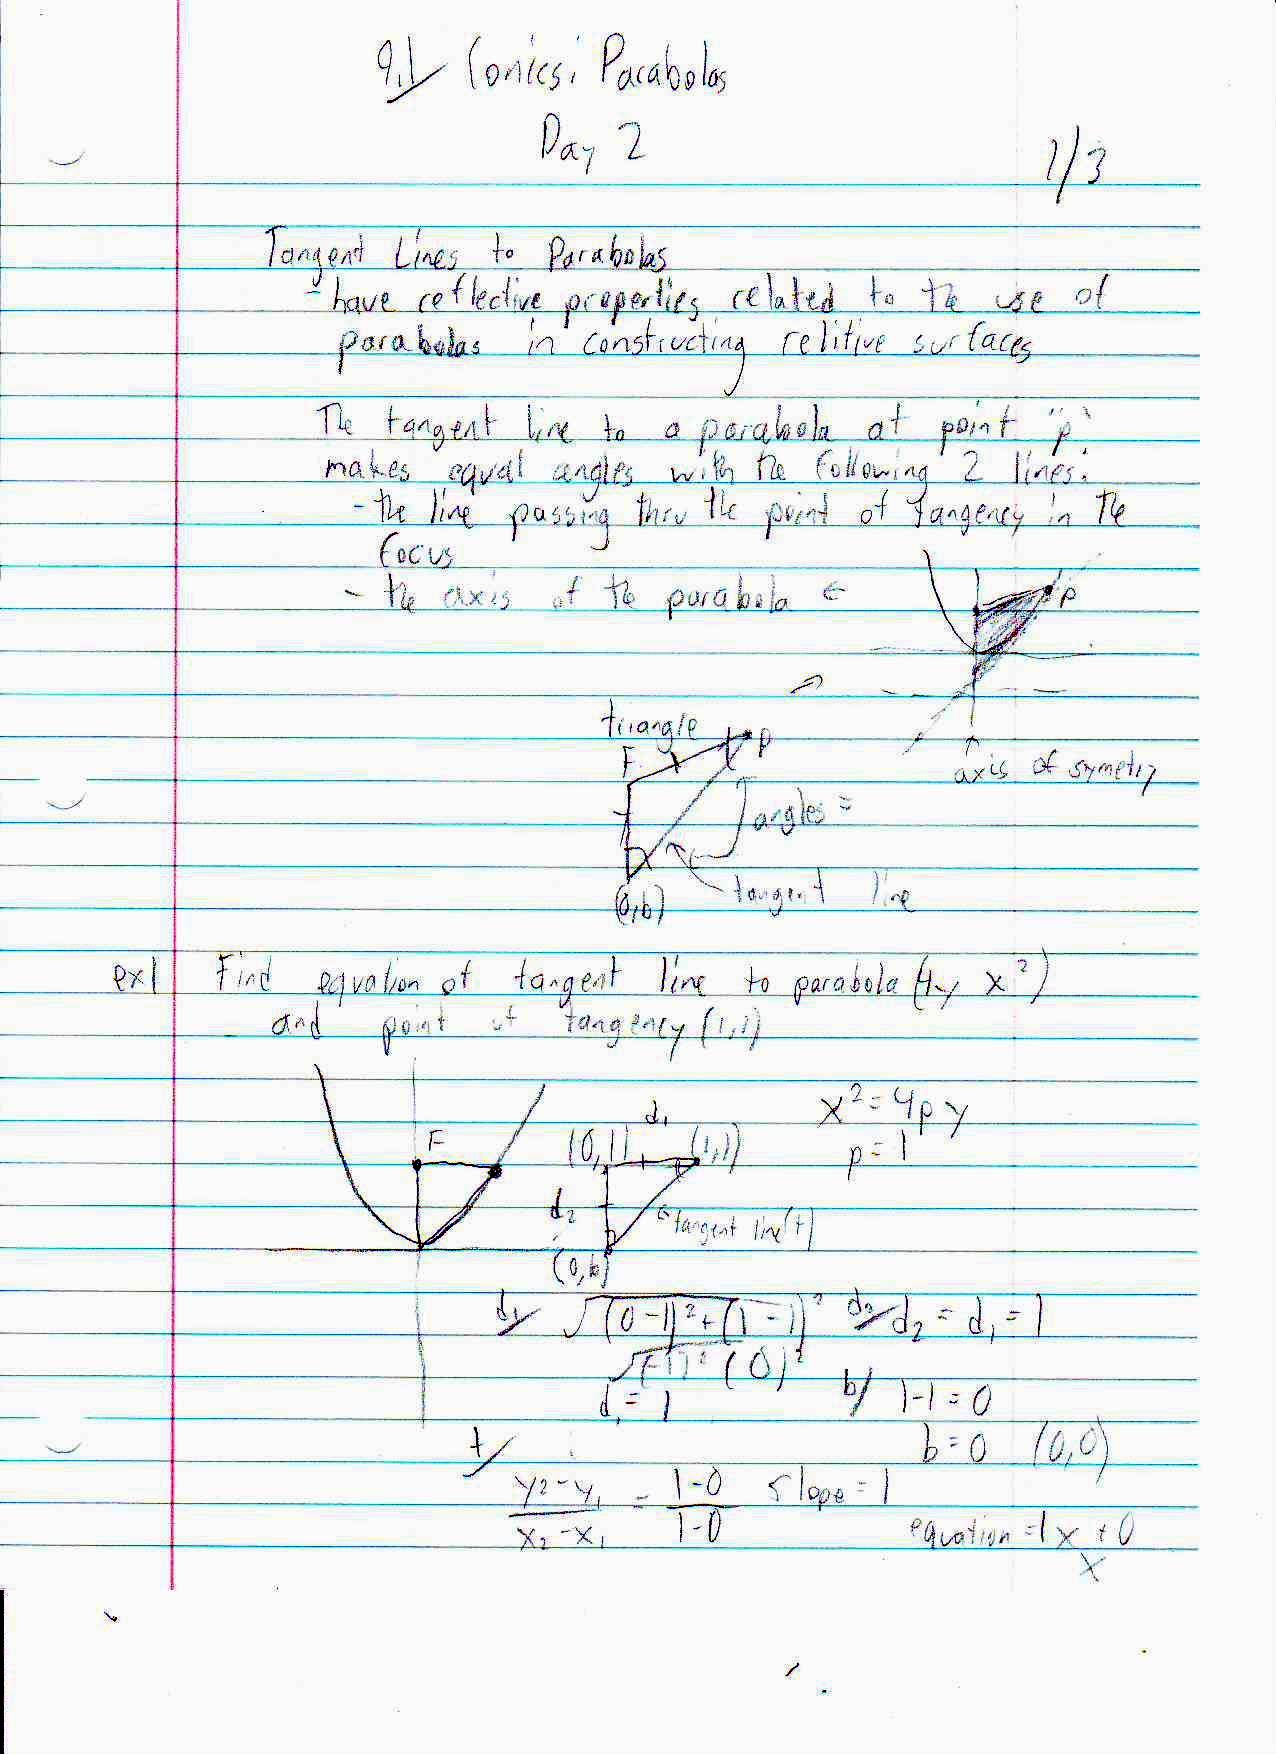 9.1/ Conics: Parabolas
Day 2
1/3
Tangent Lines to Parabolas
- have reflective properties related to the use of
parabolas in constructing relitive surfaces
The tangent line to a parabola at point "p"
makes equal angles with the following 2 lines:
- the line passing thru the point of tangency in the
focus
- the axis of the parabola ←
p
axis of symetry
triangle
F
p
angles =
tangent line
(0,b)
ex1 Find equation of tangent line to parabola (4y x²)
and point of tangency (1,1)
x² = 4py
p = 1
F
d₁
(0,1) (1,1)
d₂
← tangent line (t)
(0,b)
d₁/ √(0-1)² + (1-1)²
d₂/ d₂ = d₁ = 1
√(-1)² (0)²
d₁ = 1
b/ 1-1 = 0
b = 0 (0,0)
t/
y₂-y₁/x₂-x₁ = 1-0/1-0 slope = 1
equation = 1x + 0
x